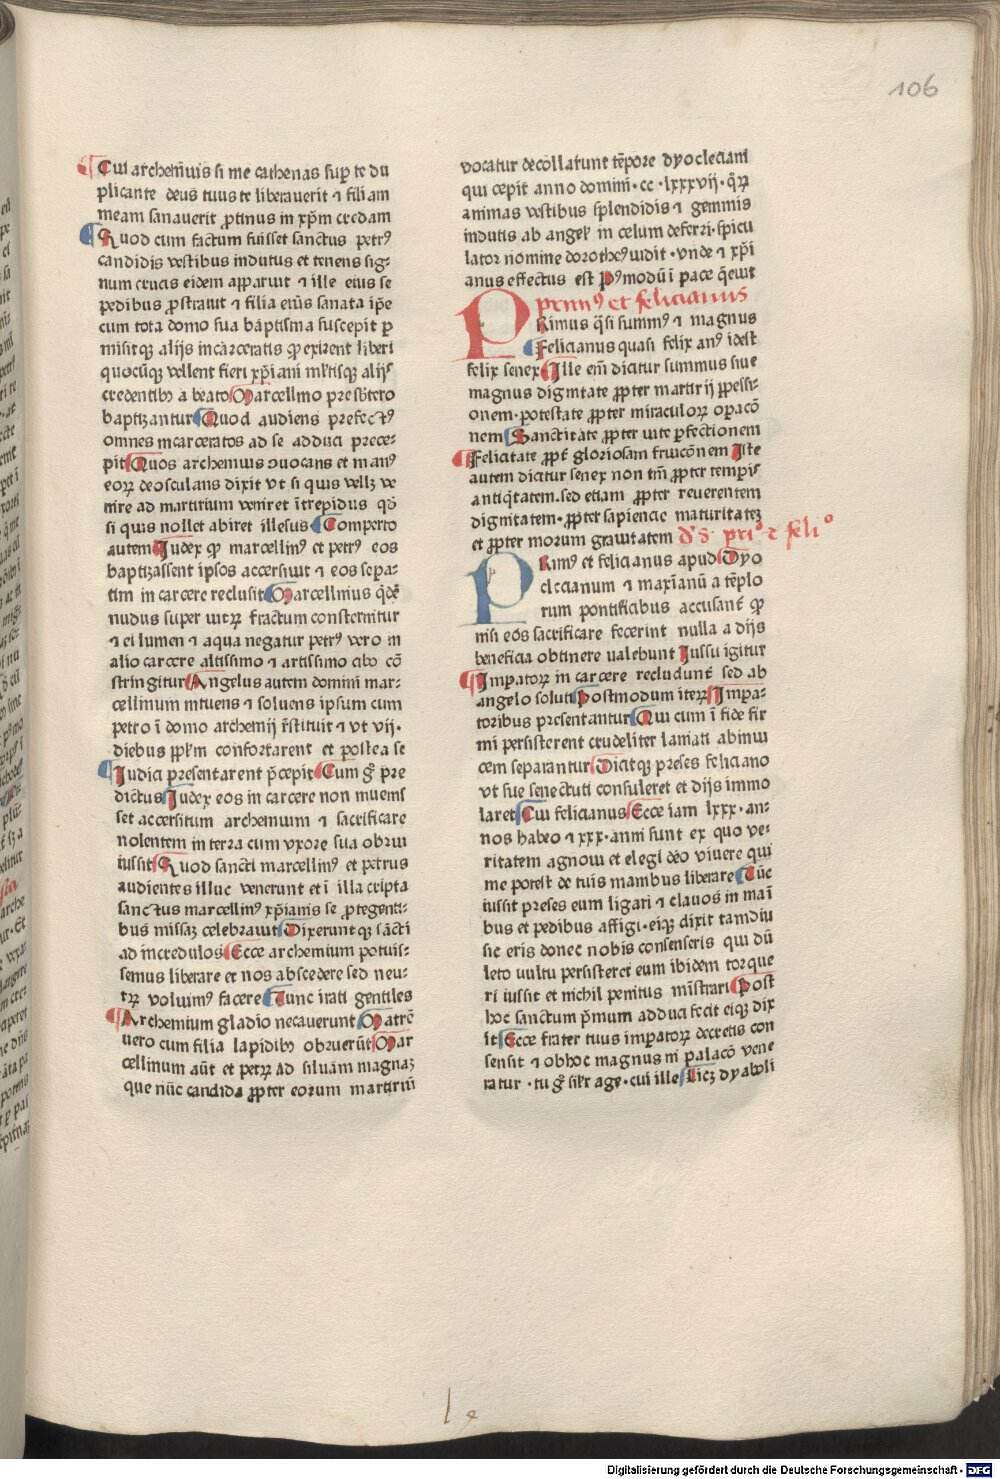 106
Cui archemius si me cathenas sup te du
plicante deus tuus te liberauerit ⁊ filiam
meam sanauerit ꝓtinus in xp̄m credam
Quod cum factum fuisset sanctus petrꝰ
candidis vestibus indutus et tenens sig-
num crucis eidem apparuit ⁊ ille eius se
pedibus ꝓstrauit ⁊ filia eius sanata ip̄e
cum tota domo sua baptisma suscepit ꝑ
misitqꝫ alijs incarceratis ꝙ exirent liberi
quocūqꝫ vellent fieri xp̄iani mltisqꝫ alijs
credentibꝫ a beato Marcellino presbitero
baptizantur Quod audiens prefectꝰ
omnes incarceratos ad se adduci prece-
pit Quos archemius auocans et manꝰ
eoꝝ deosculans dixit vt si quis vellꝫ ve
nire ad martirium veniret ītrepidus qd̄
si quis nollet abiret illesus Comperto
autem Judex ꝙ marcellinꝰ et petrꝰ eos
baptizassent ipsos accersiuit ⁊ eos sepa-
tim in carcere reclusit Marcellinus qͥdē
nudus super vitꝝ fractum consternitur
⁊ ei lumen ⁊ aqua negatur petrꝰ vero in
alio carcere altissimo ⁊ artissimo cibo cō
stringitur Angelus autem domini mar-
cellinum intuens ⁊ soluens ipsum cum
petro ī domo archemij r̄stituit ⁊ vt vij.
diebus pplm confortarent et postea se
Judici presentarent p̄cepit Cum gͦ pre
dictus Judex eos in carcere non inuenis
set accersitum archemium ⁊ sacrificare
nolentem in terra cum vxore sua obrui
iussit Quod sancti marcellinꝰ et petrus
audientes illuc venerunt et ī illa cripta
sanctus marcellinꝰ xp̄ianis se ꝓtegenti-
bus missaꝫ celebrauit Dixeruntqꝫ sācti
ad incredulos Ecce archemium potuis-
semus liberare et nos abscedere sed neu-
trꝝ voluimꝰ facere Tunc irati gentiles
Archemium gladio necauerunt Matrē
uero cum filia lapidibꝫ obruerūt Mar
cellinum aūt et petrꝝ ad siluam magnaꝫ
que nūc candida ꝓpter eorum martiriū
vocatur decollarunt tēpore dyocleciani
qui cepit anno domini. cc .lxxxvij. qͣꝝ
animas vestibus splendidis ⁊ gemmis
indutis ab angeꝉ in celum deferri. spicu
lator nomine dorotheꝰ vidit. vnde ⁊ xp̄i
anus effectus est pꝰmodū ī pace qͥeuit
primꝰ et felicianus
PRimus qͣsi summꝰ ⁊ magnus
Felicianus quasi felix anꝰ idest
felix senex Ille em̄ dicitur summus siue
magnus dignitate ꝓpter martirij ꝑpessi-
onem. potestate ꝓpter miraculoꝝ oꝑacō
nem Sanctitate ꝓpter uite ꝑfectionem
Felicitate ꝓpt̄ gloriosam fruicōnem Iste
autem dicitur senex non tm̄ ꝓpter tempis
antiqͥtatem. sed etiam ꝓpter reuerentem
dignitatem. ꝓpter sapiencie maturitateꝫ
et ꝓpter morum grauitatem d̄ s̄. priͦ ⁊ feliͦ
PRimꝰ et felicianus apud Dyo
clecianum ⁊ maxiānū a tēplo
rum pontificibus accusant̄ ꝙ
nisi eos sacrificare fecerint nulla a dijs
beneficia obtinere ualebunt Jussu igitur
Impatoꝝ in carcere recludunt̄ sed ab
angelo soluti Postmodum iteꝝ Impa-
toribus presentantur Qui cum ī fide fir
mi persisterent crudeliter laniati abinui
cem separantur Dicitqꝫ preses feliciano
vt sue senectuti consuleret et dijs immo
laret Cui felicianus Ecce iam lxxx. an-
nos habeo ⁊ xxx. anni sunt ex quo ve-
ritatem agnoui et elegi dēo viuere qui
me potest de tuis manibus liberare Tūc
iussit preses eum ligari ⁊ clauos in mai
bus et pedibus affigi. eiqꝫ dixit tamdiu
sic eris donec nobis consenseris qui dū
leto uultu persisteret eum ibidem torque
ri iussit et nichil penitus mīstrari Post
hoc sanctum p̄mum adduci fecit eiqꝫ dix
it Ecce frater tuus impatoꝝ decretis con
sensit ⁊ obhoc magnus in palacō vene
ratur. tu gͦ silr age. cui ille Licꝫ dyaboli
Digitalisierung gefördert durch die Deutsche Forschungsgemeinschaft - DFG